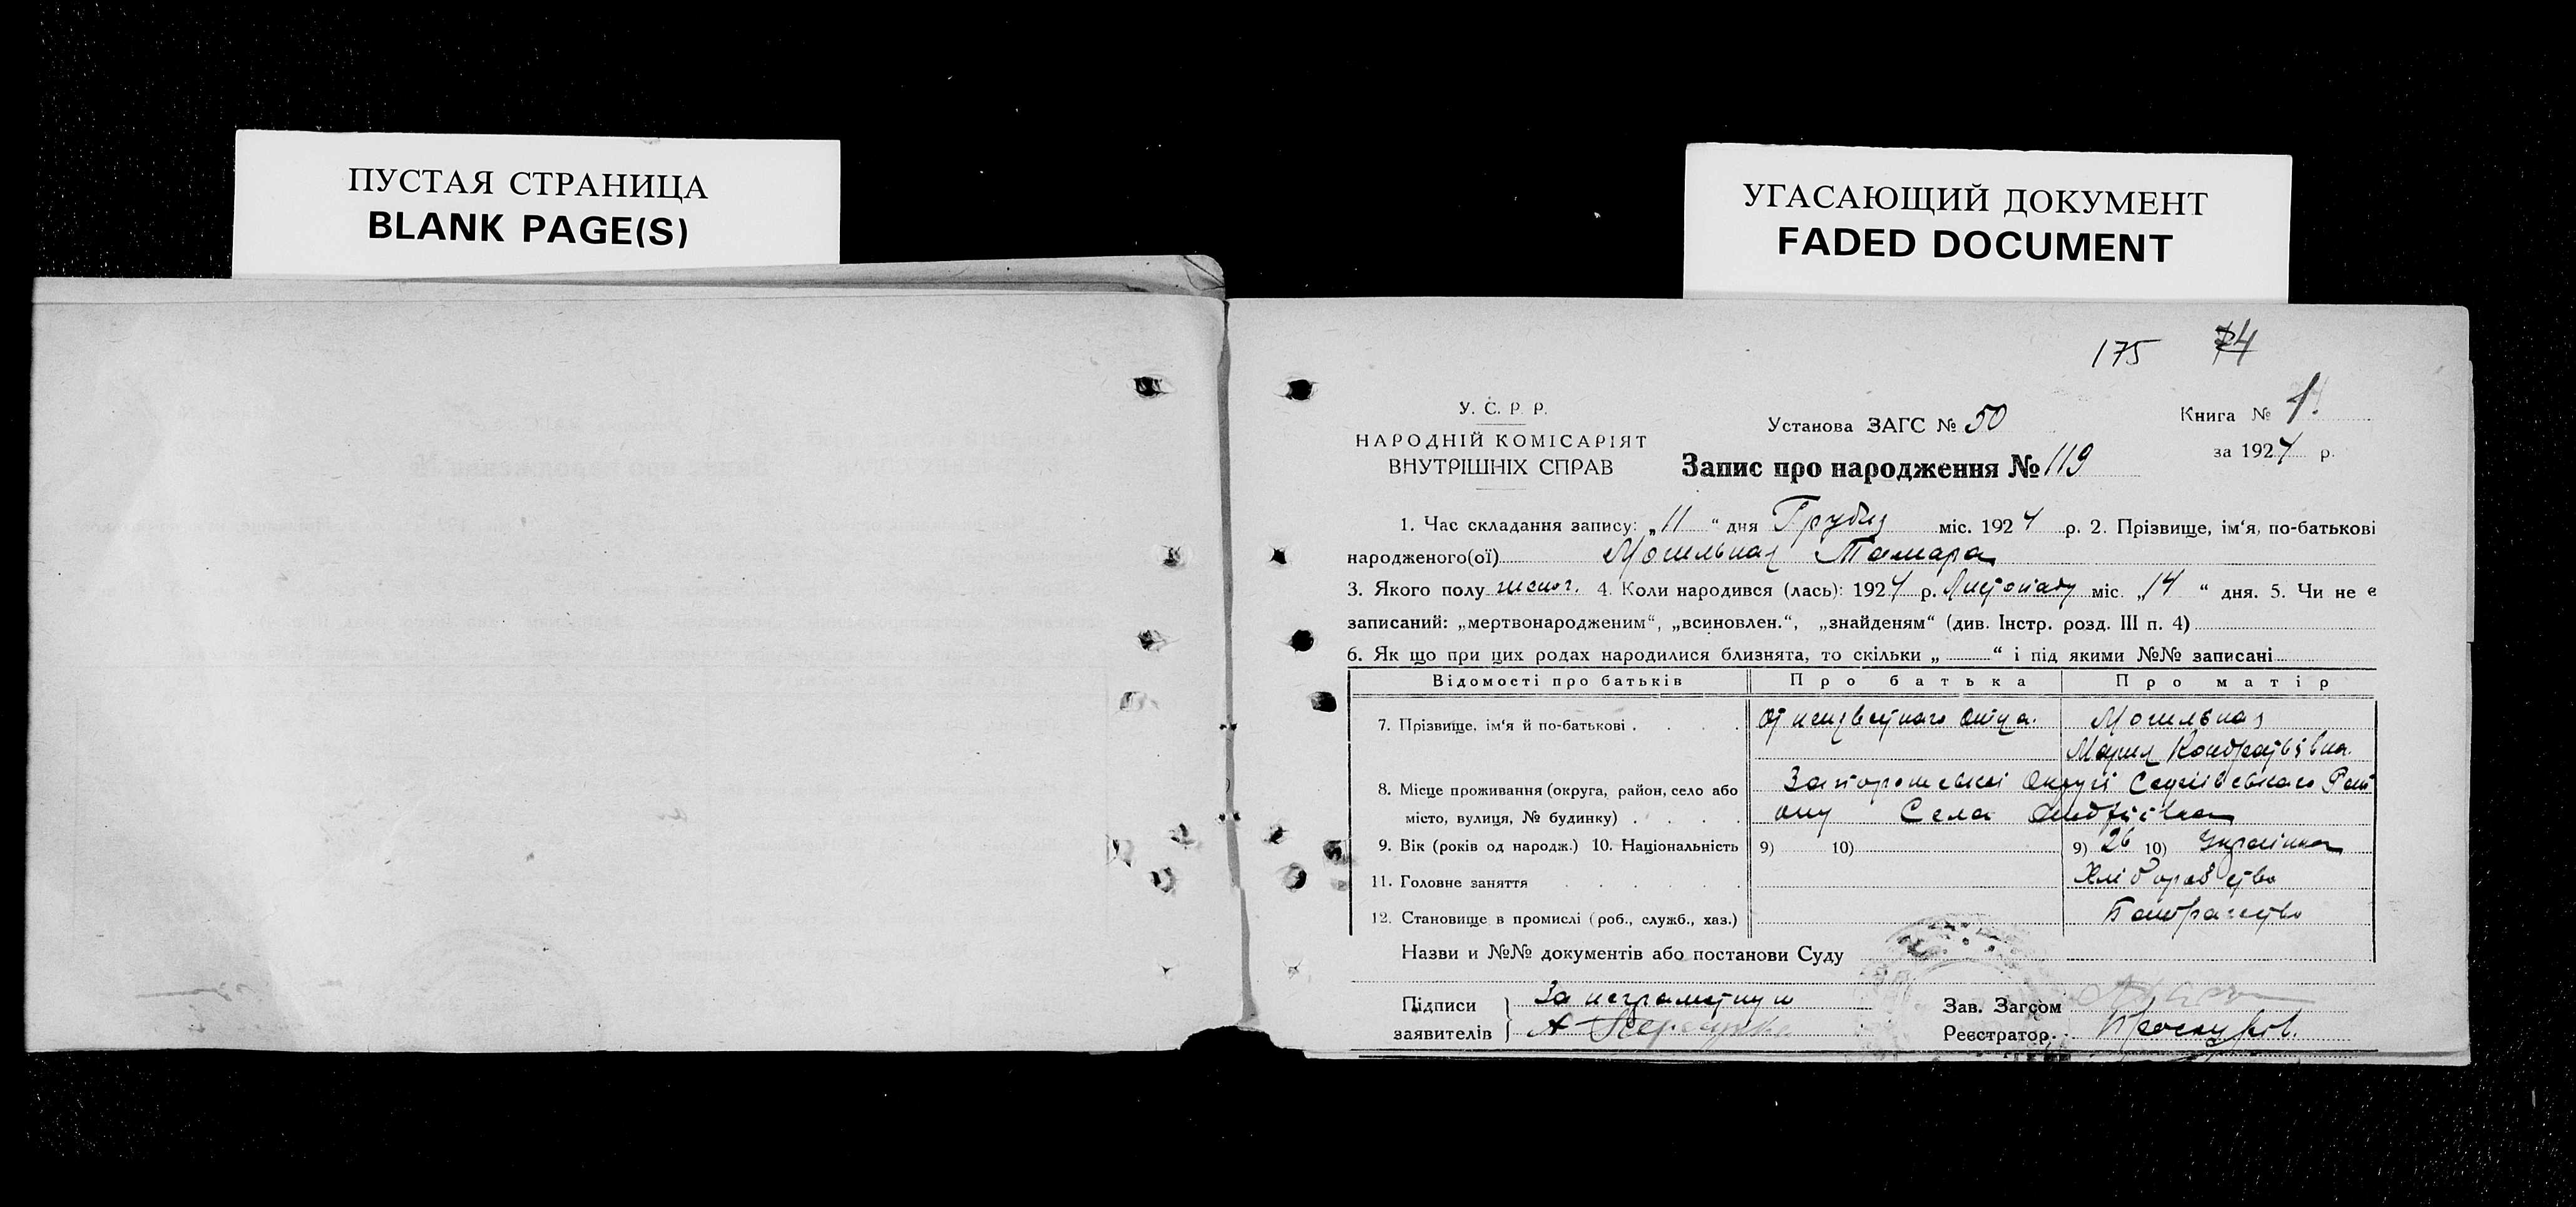 ПУСТАЯ СТРАНИЦА
BLANK PAGE(S)
УГАСАЮЩИЙ ДОКУМЕНТ
FADED DOCUMENT
175 74
У. С. Р. Р.
НАРОДНІЙ КОМІСАРІЯТ
ВНУТРІШНІХ СПРАВ
Установа ЗАГС № 50
Запис про народження № 119
Книга № 1
за 1924 р.
1. Час складання запису: „11“ дня Грудня міс. 1924 р. 2. Прізвище, ім'я, по-батькові
народженого(ої) Могильная Тамара
3. Якого полу женог. 4. Коли народився (лась): 1924 р. Листопаду міс. „14“ дня. 5. Чи не є
записаний: „мертвонародженим“, „всиновлен.“, „знайденям“ (див. Інстр. розд. III п. 4)
6. Як що при цих родах народилися близнята, то скільки „ “ і під якими №№ записані
Відомості про батьків Про батька Про матір
7. Прізвище, ім'я й по-батькові . От неизвестного отца. Могильная
Мария Кондратьівна
8. Місце проживання (округа, район, село або Запорожської Округі Рай
місто, вулиця, № будинку) . ону Села Андріівка
9. Вік (років од народж.) 10. Національність 9) 10) 9) 26 10) Українка
11. Головне заняття Хліборобство
12. Становище в промислі (роб., служб., хаз.)
Назви и №№ документів або постанови Суду
Підписи За неграмотную Зав. Загсом
заявителів А Реєстратор